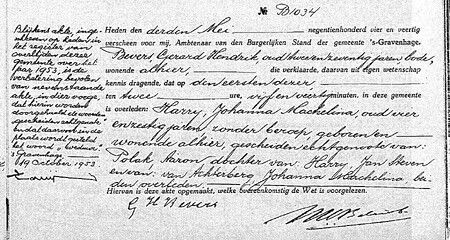 No. B1034
Heden den derden Mei negentienhonderd vier en veertig
verscheen voor mij, Ambtenaar van den Burgerlijken Stand der gemeente 's-Gravenhage.
Bevers, Gerard Hendrik, oud tweeenzeventig jaren, bode,
wonende alhier, die verklaarde, daarvan uit eigen wetenschap
kennis dragende, dat op den eersten dezer
ten twee ure, vijf en veertig minuten, in deze gemeente
is overleden: Harry, Johanna Machelina, oud vier
en zestig jaren, zonder beroep, geboren en
wonende alhier, gescheiden echtgenoote van:
Polak Aaron, dochter van: Harry, Jan Steven
en van: van Achterberg, Johanna Machelina, bei-
den overleden
Hiervan is deze akte opgemaakt, welke overeenkomstig de Wet is voorgelezen.
G H Bevers
Blijkens akte, inge-
schreven op heden in
het register van
overlijden dezer
gemeente over het
jaar 1953, is de
verbetering bevolen
van nevenstaande
akte, in dier voege,
dat hierin worde
doorgehaald de woorden
"gescheiden echtgenoote"
en dat daarvoor in de
plaats wordt gesteld
het woord "weduwe".
's Gravenhage
19 October 1953